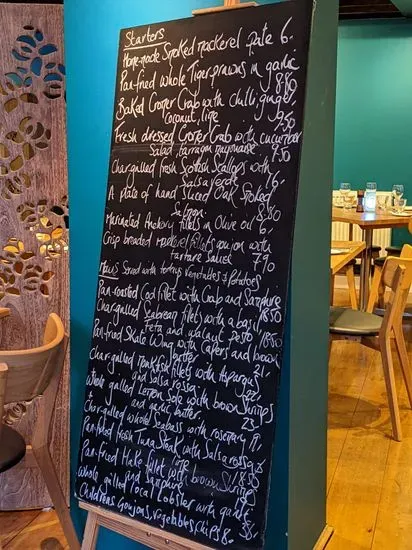 Starters
Home-made Smoked mackerel pate 6.
Pan-fried Whole Tiger prawns in garlic
8.80
Baked Cromer Crab with chilli, ginger,
Coconut, lime 9.50
Fresh dressed Cromer Crab with cucumber
Salad, tarragon mayonnaise 9.50
Chargrilled fresh Scottish Scallops with
Salsa verde
A plate of hand sliced Oak Smoked
Salmon 8.80
Marinated Anchovy fillets in Olive oil 6.
Crisp breaded Mackerel fillets with
tartare Sauce 7.90
Mains Served with Vegetables & potatoes
Pan-roasted Cod fillet with Crab and Samphire
18.50
Chargrilled Seabream fillet with a basil,
feta and walnut pesto 18.50
Pan-fried Skate Wing with Capers and brown
butter 21.
Chargrilled Monkfish fillets with Asparagus
and Salsa rossa
Whole grilled Lemon Sole with brown Shrimps
and garlic butter 23.
Chargrilled whole Seabass with rosemary
Pan-fried fresh Tuna Steak with Salsa rossa
Pan-fried Hake fillet with brown Shrimps
and Samphire
Whole grilled local Lobster with garlic
Childrens Goujons, Vegetables, Chips 8.